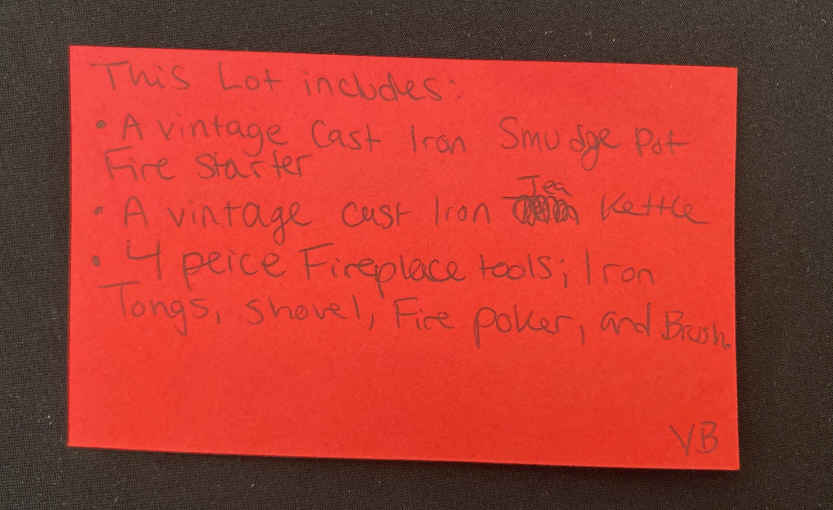 This Lot includes:
• A vintage Cast Iron Smudge Pot
Fire Starter
• A vintage cast Iron Tea Kettle
• 4 peice Fireplace tools; Iron
Tongs, shovel, Fire poker, and Brush.
VB